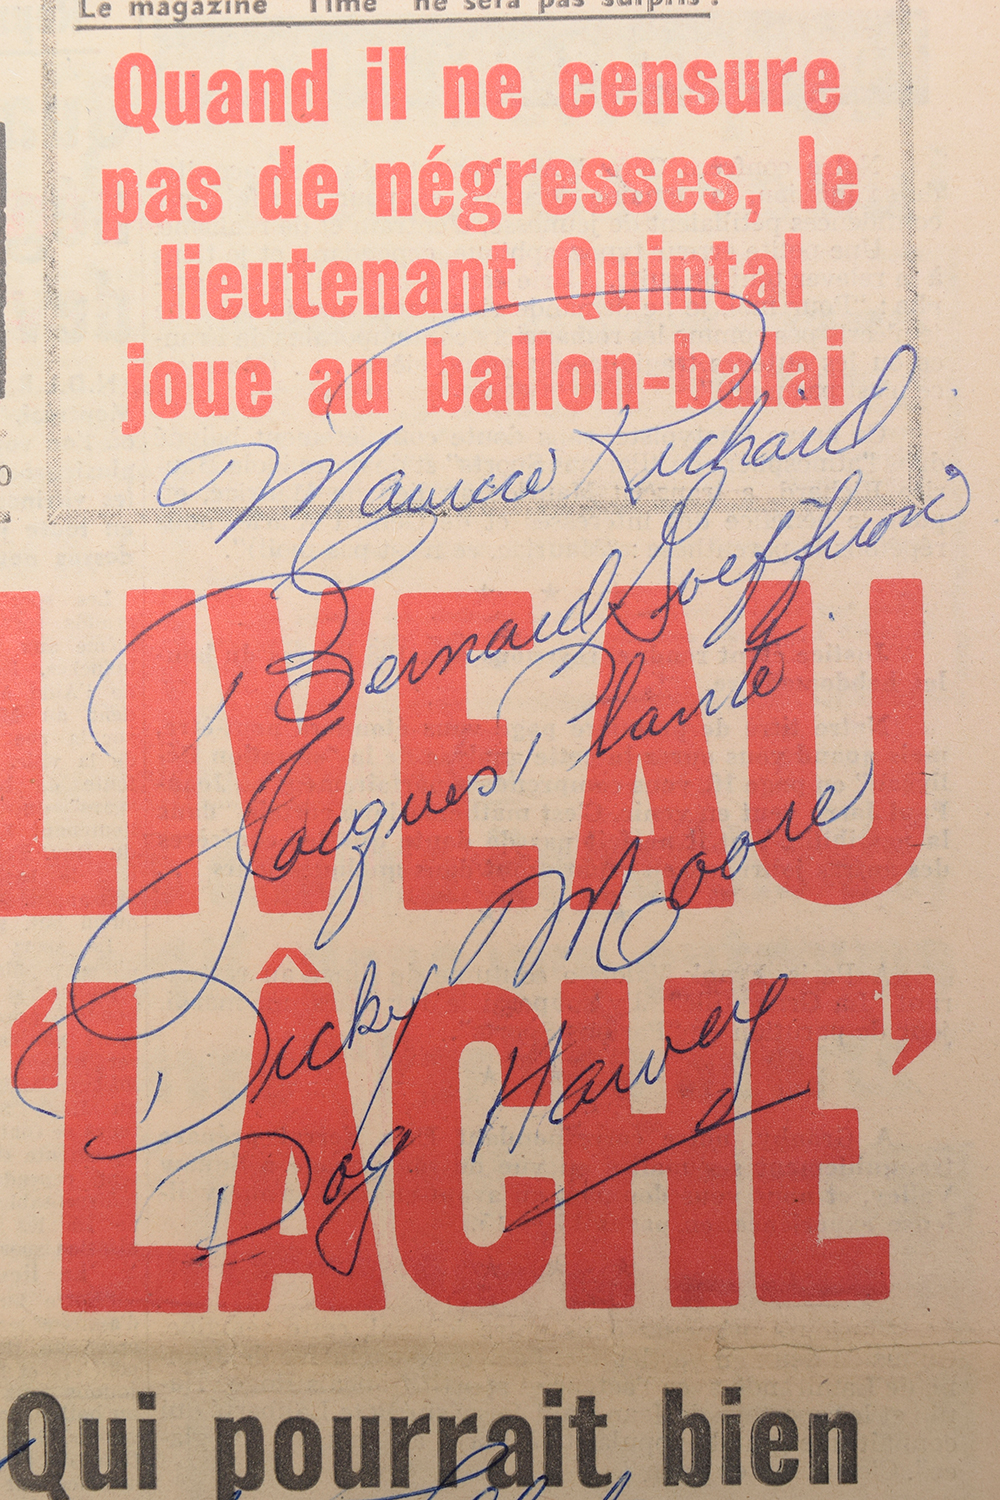 Le magazine "Time" ne sera pas surpris!
Quand il ne censure
pas de négresses, le
lieutenant Quintal
joue au ballon-balai
Maurice Richard
Bernard Geoffrion
LIVEAU
Jacques Plante
Dicky Moore
'LÂCHE'
Dog Harvey
Qui pourrait bien